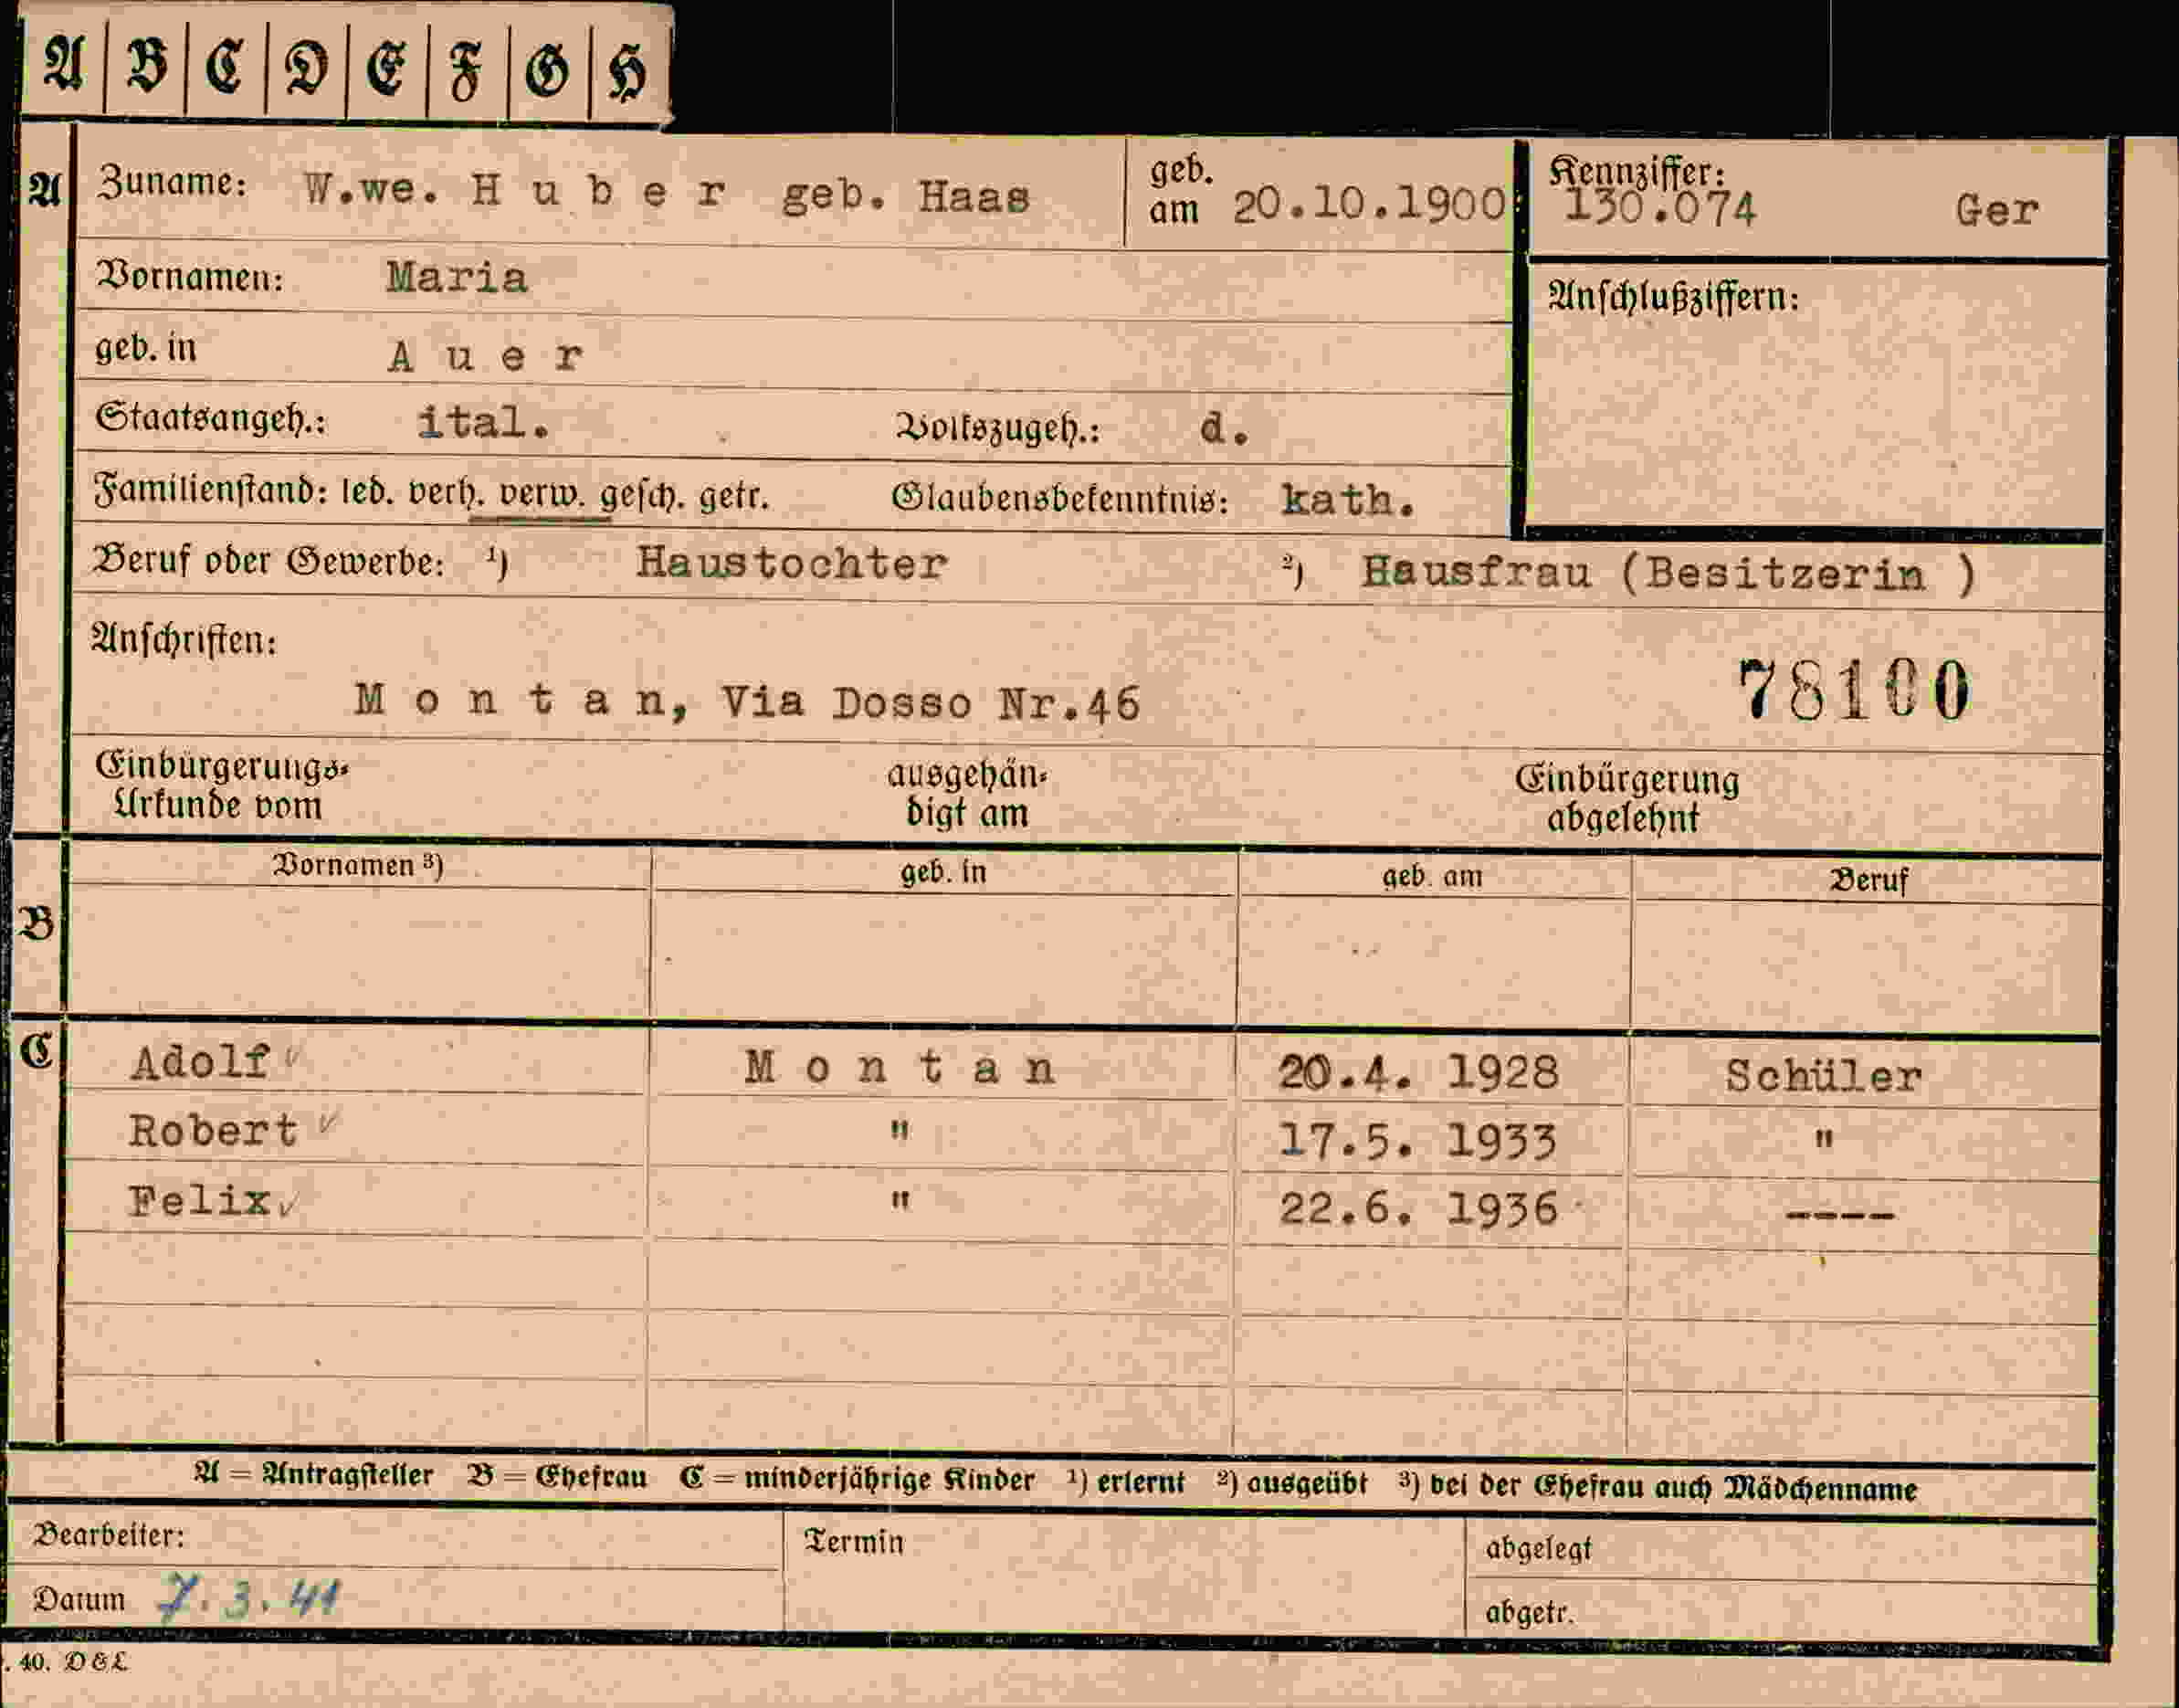 A B C D E F G H
A Zuname: W.we. H u b e r geb. Haas geb. am 20.10.1900 Kennziffer: 130.074 Ger
Vornamen: Maria
Anschlußziffern:
geb. in A u e r
Staatsangeh.: ital. Volkszugeh.: d.
Familienstand: led. verh. verw. gesch. getr. Glaubensbekenntnis: kath.
Beruf oder Gewerbe: ¹) Haustochter ²) Hausfrau (Besitzerin )
Anschriften:
M o n t a n, Via Dosso Nr.46 78100
Einbürgerungs- ausgehän- Einbürgerung
Urkunde vom digt am abgelehnt
Vornamen ³) geb. in geb. am Beruf
B
C Adolf ✓ M o n t a n 20.4. 1928 Schüler
Robert ✓ " 17.5. 1933 "
Felix ✓ " 22.6. 1936 ----
A = Antragsteller B = Ehefrau C = minderjährige Kinder ¹) erlernt ²) ausgeübt ³) bei der Ehefrau auch Mädchenname
Bearbeiter: Termin abgelegt
Datum 7.3.41 abgetr.
. 40. D & L